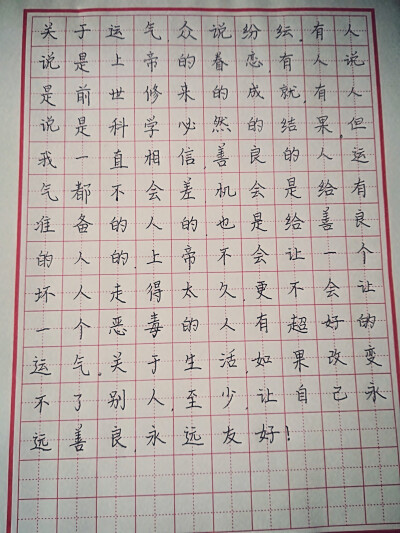 关于运气众说纷纭.有人
说是上帝的眷恋有人说
是前世修来的成就.有人
说是科学必然的结果.但
我一直相信.善良的人运
气都不会差.机会是给有
准备的人的.也是给善良
的人的.上帝不会让一个
坏人走得太久.更不会让
一个恶毒的人有超好的
运气.关于生活.如果改变
不了别人.至少.让自己永
远善良.永远友好!